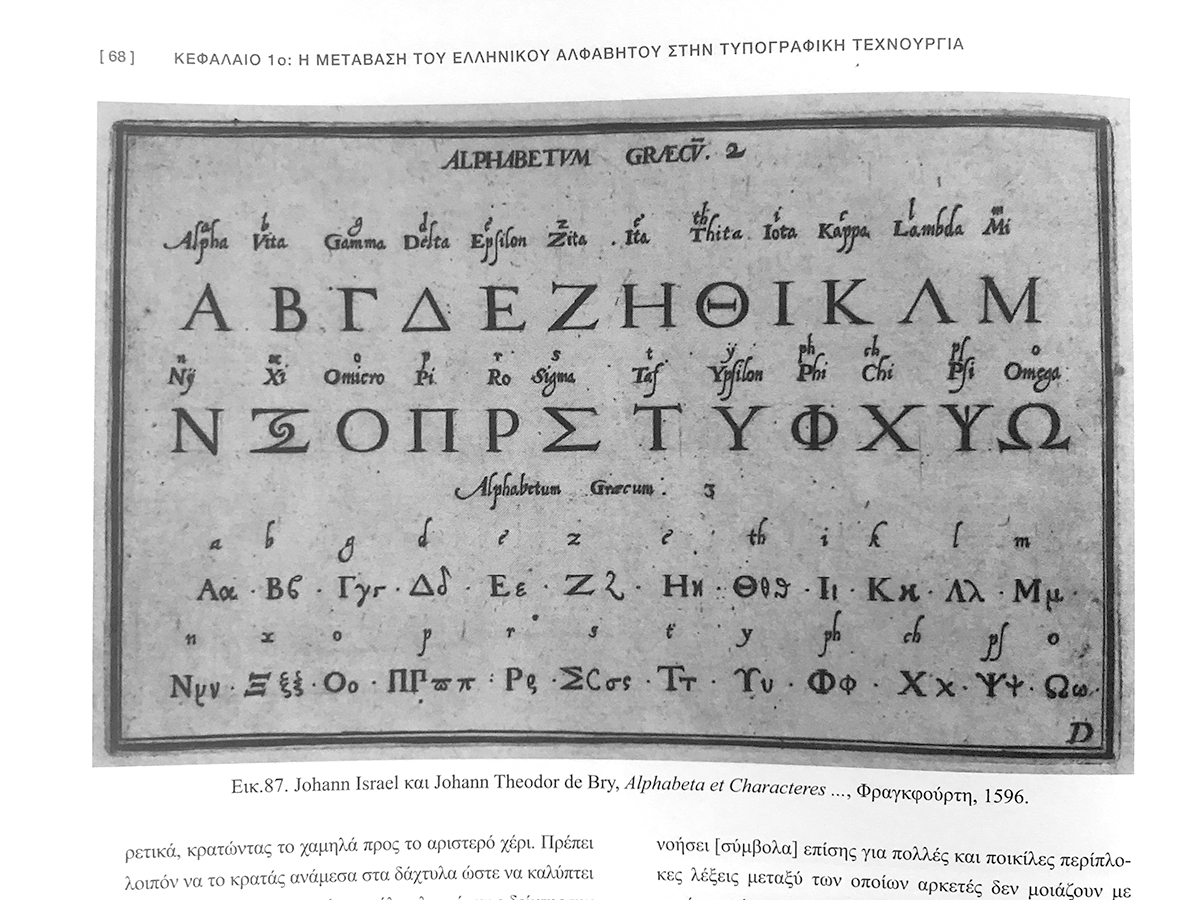 [ 68 ] ΚΕΦΑΛΑΙΟ 1ο: Η ΜΕΤΑΒΑΣΗ ΤΟΥ ΕΛΛΗΝΙΚΟΥ ΑΛΦΑΒΗΤΟΥ ΣΤΗΝ ΤΥΠΟΓΡΑΦΙΚΗ ΤΕΧΝΟΥΡΓΙΑ
ALPHABETVM GRÆCV̄. 2
a b g d e z e th i c l m
Alpha Vita Gamma Delta Epsilon Zita Ita Thita Iota Kappa Lambda Mi
Α Β Γ Δ Ε Ζ Η Θ Ι Κ Λ Μ
n x o p r s t ÿ ph ch pſ o
Nÿ Xi Omicro Pi Ro Sigma Taf Ypſilon Phi Chi Pſi Omega
Ν Ξ Ο Π Ρ Σ Τ Υ Φ Χ Ψ Ω
Alphabetum Græcum. 3
a b g d e z e th i k l m
Αα · Βϐ · Γγ · Δδ · Εε · Ζζ · Ηη · Θθϑ · Ιι · Κκ · Λλ · Μμ ·
n x o p r s t y ph ch pſ o
Νν · Ξξξ · Οο · ΠΠϖπ : Ρρ · ΣϹσς · Ττ · ϒυ · Φφ · Χχ · Ψψ · Ωω ·
D
Εικ.87. Johann Israel και Johann Theodor de Bry, Alphabeta et Characteres ..., Φραγκφούρτη, 1596.
ρετικά, κρατώντας το χαμηλά προς το αριστερό χέρι. Πρέπει
λοιπόν να το κρατάς ανάμεσα στα δάχτυλα ώστε να καλύπτει
νοήσει [σύμβολα] επίσης για πολλές και ποικίλες περίπλο-
κες λέξεις μεταξύ των οποίων αρκετές δεν μοιάζουν με